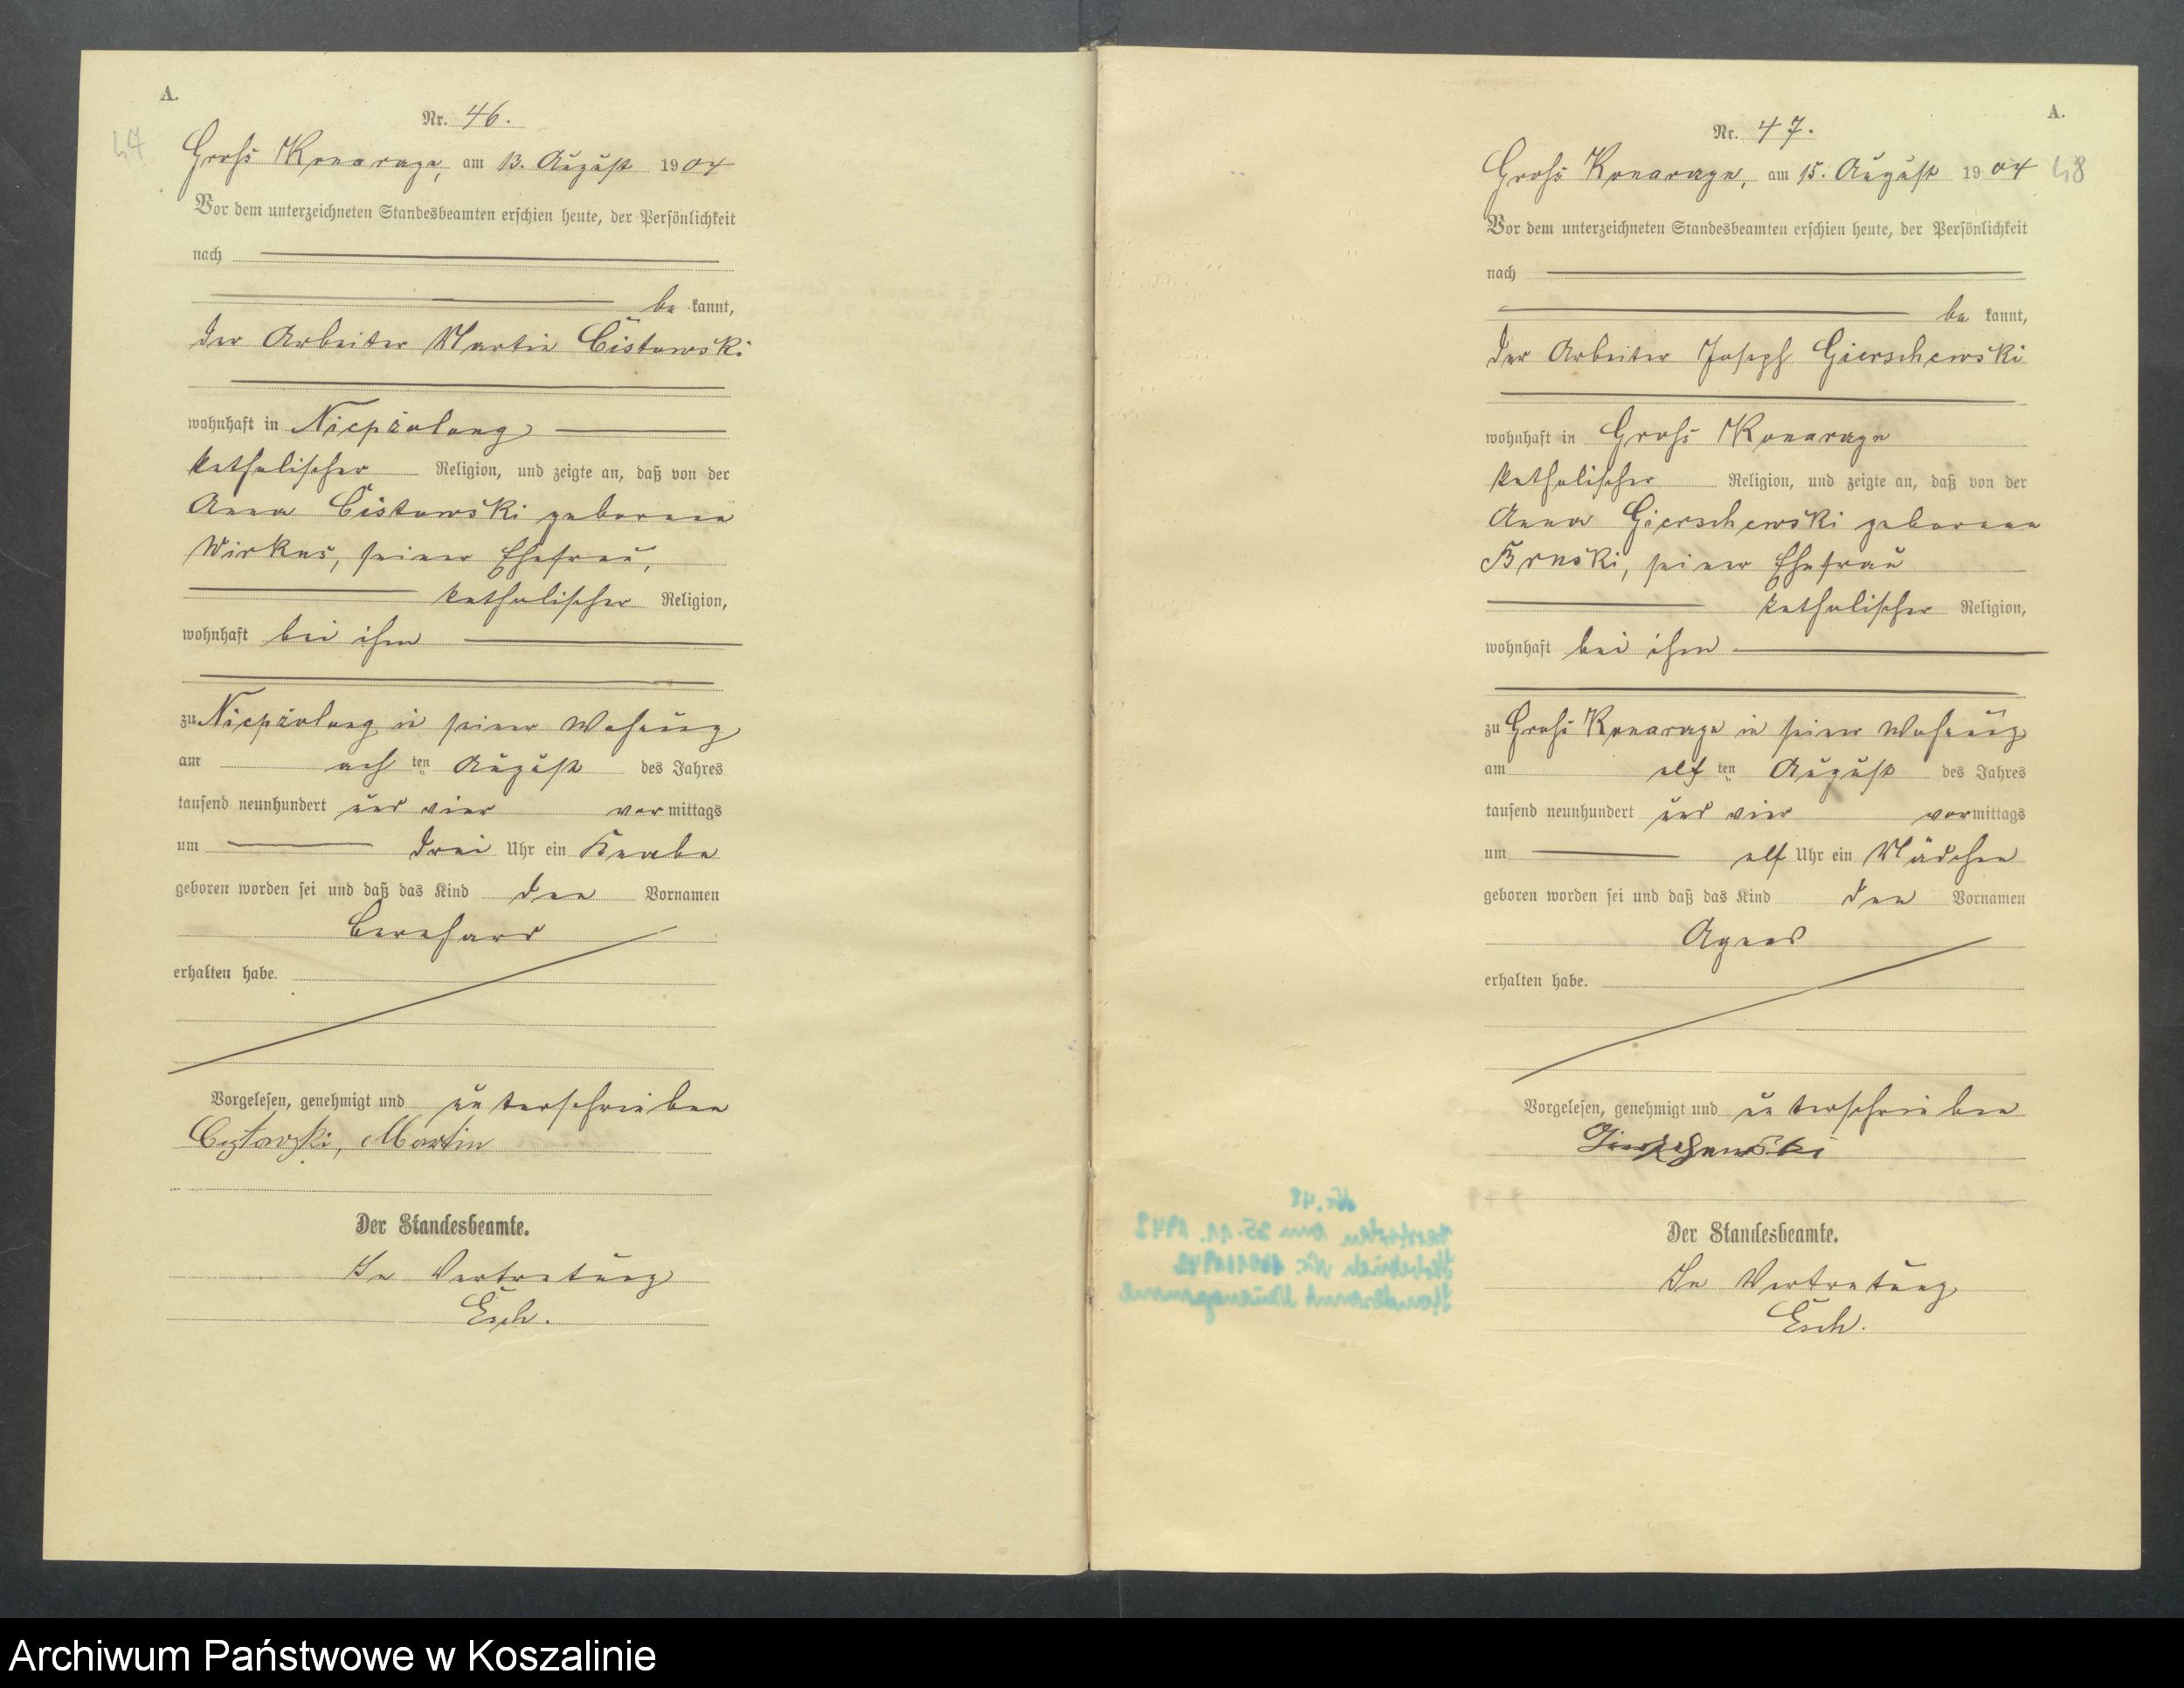 A.
47
Nr. 46.
Groß Konarzyn, am 13. August 1904
Vor dem unterzeichneten Standesbeamten erschien heute, der Persönlichkeit
nach
be kannt,
der Arbeiter Martin Cistowski
wohnhaft in Niepszolong
katholischer Religion, und zeigte an, daß von der
Anna Cistowski geborenen
Wirkus, seiner Ehefrau,
katholischer Religion,
wohnhaft bei ihm
zu Niepszolong in seiner Wohnung
am ach ten August des Jahres
tausend neunhundert und vier vor mittags
um drei Uhr ein Knabe
geboren worden sei und daß das Kind den Vornamen
Bernhard
erhalten habe.
Vorgelesen, genehmigt und unterschrieben
Martin
Der Standesbeamte.
In Vertretung
Esch.
A.
48
Nr. 47.
Groß Konarzyn, am 15. August 1904
Vor dem unterzeichneten Standesbeamten erschien heute, der Persönlichkeit
nach
be kannt,
der Arbeiter Joseph Gierschewski
wohnhaft in Groß Konarzyn
katholischer Religion, und zeigte an, daß von der
Anna Gierschewski geborenen
seiner Ehefrau
katholischer Religion,
wohnhaft bei ihm
zu Groß Konarzyn in seiner Wohnung
am elf ten August des Jahres
tausend neunhundert und vier vor mittags
um elf Uhr ein Mädchen
geboren worden sei und daß das Kind den Vornamen
Agnes
erhalten habe.
Vorgelesen, genehmigt und unterschrieben
Der Standesbeamte.
In Vertretung
Esch.
Archiwum Państwowe w Koszalinie